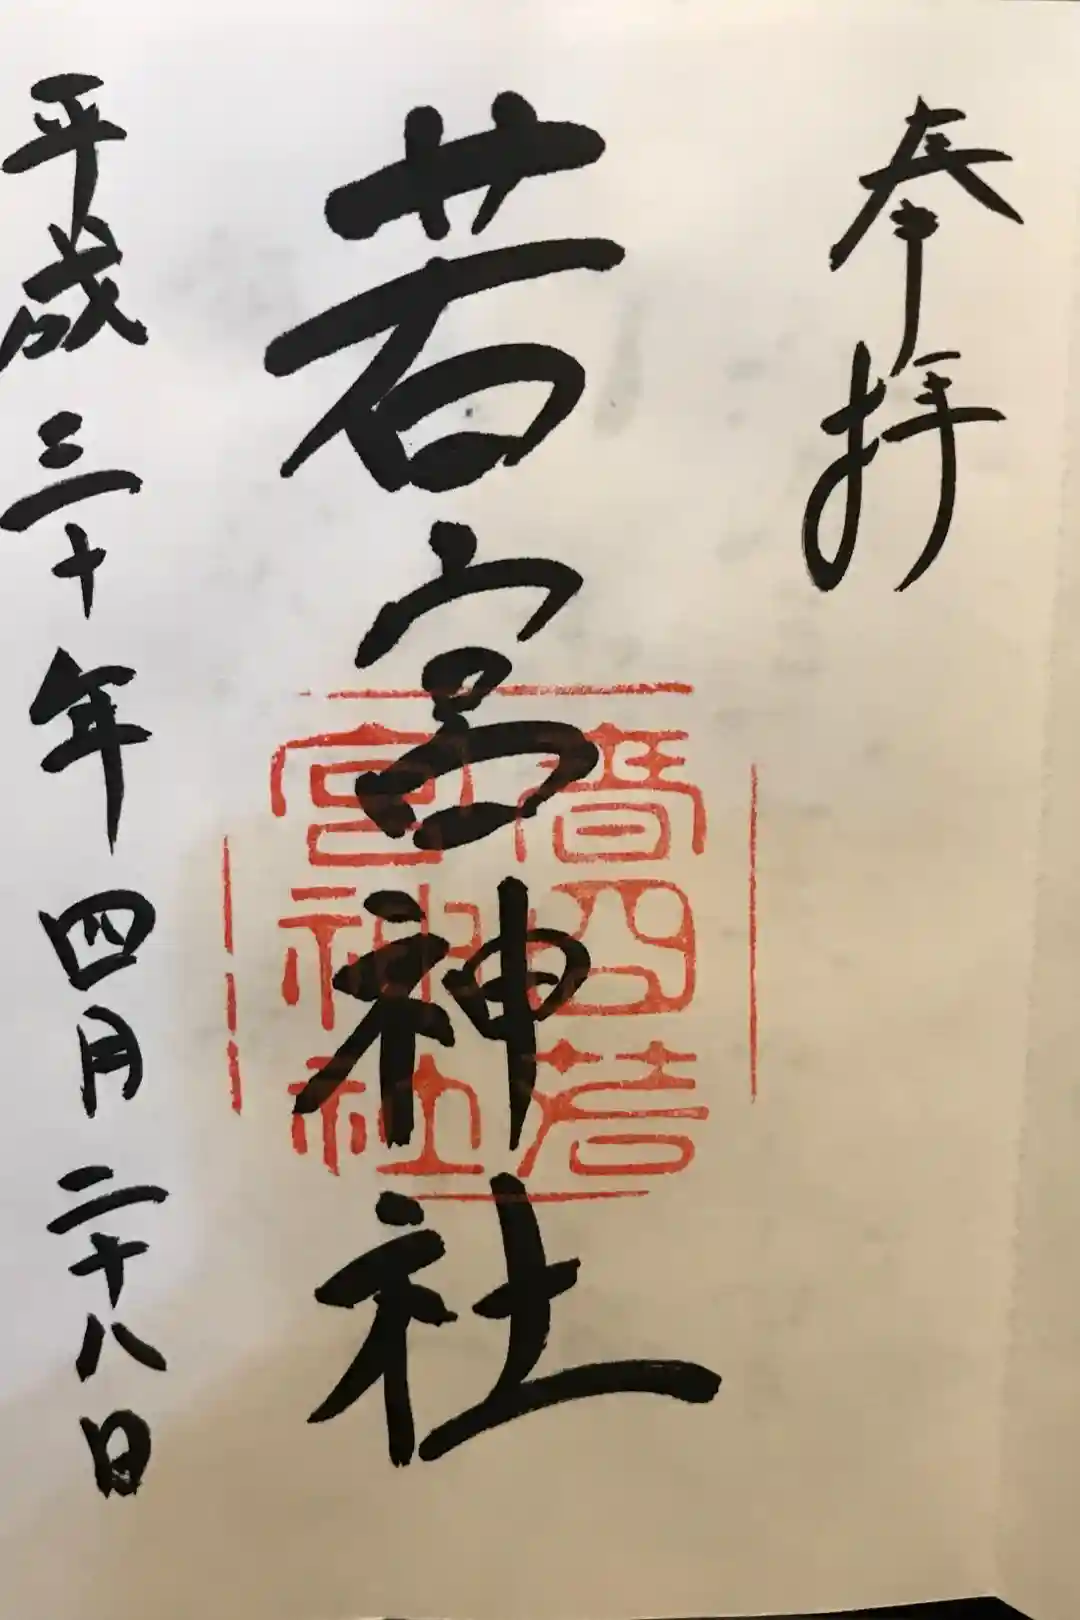 奉拝
若宮神社
若
宮神社
平成三十年四月二十八日